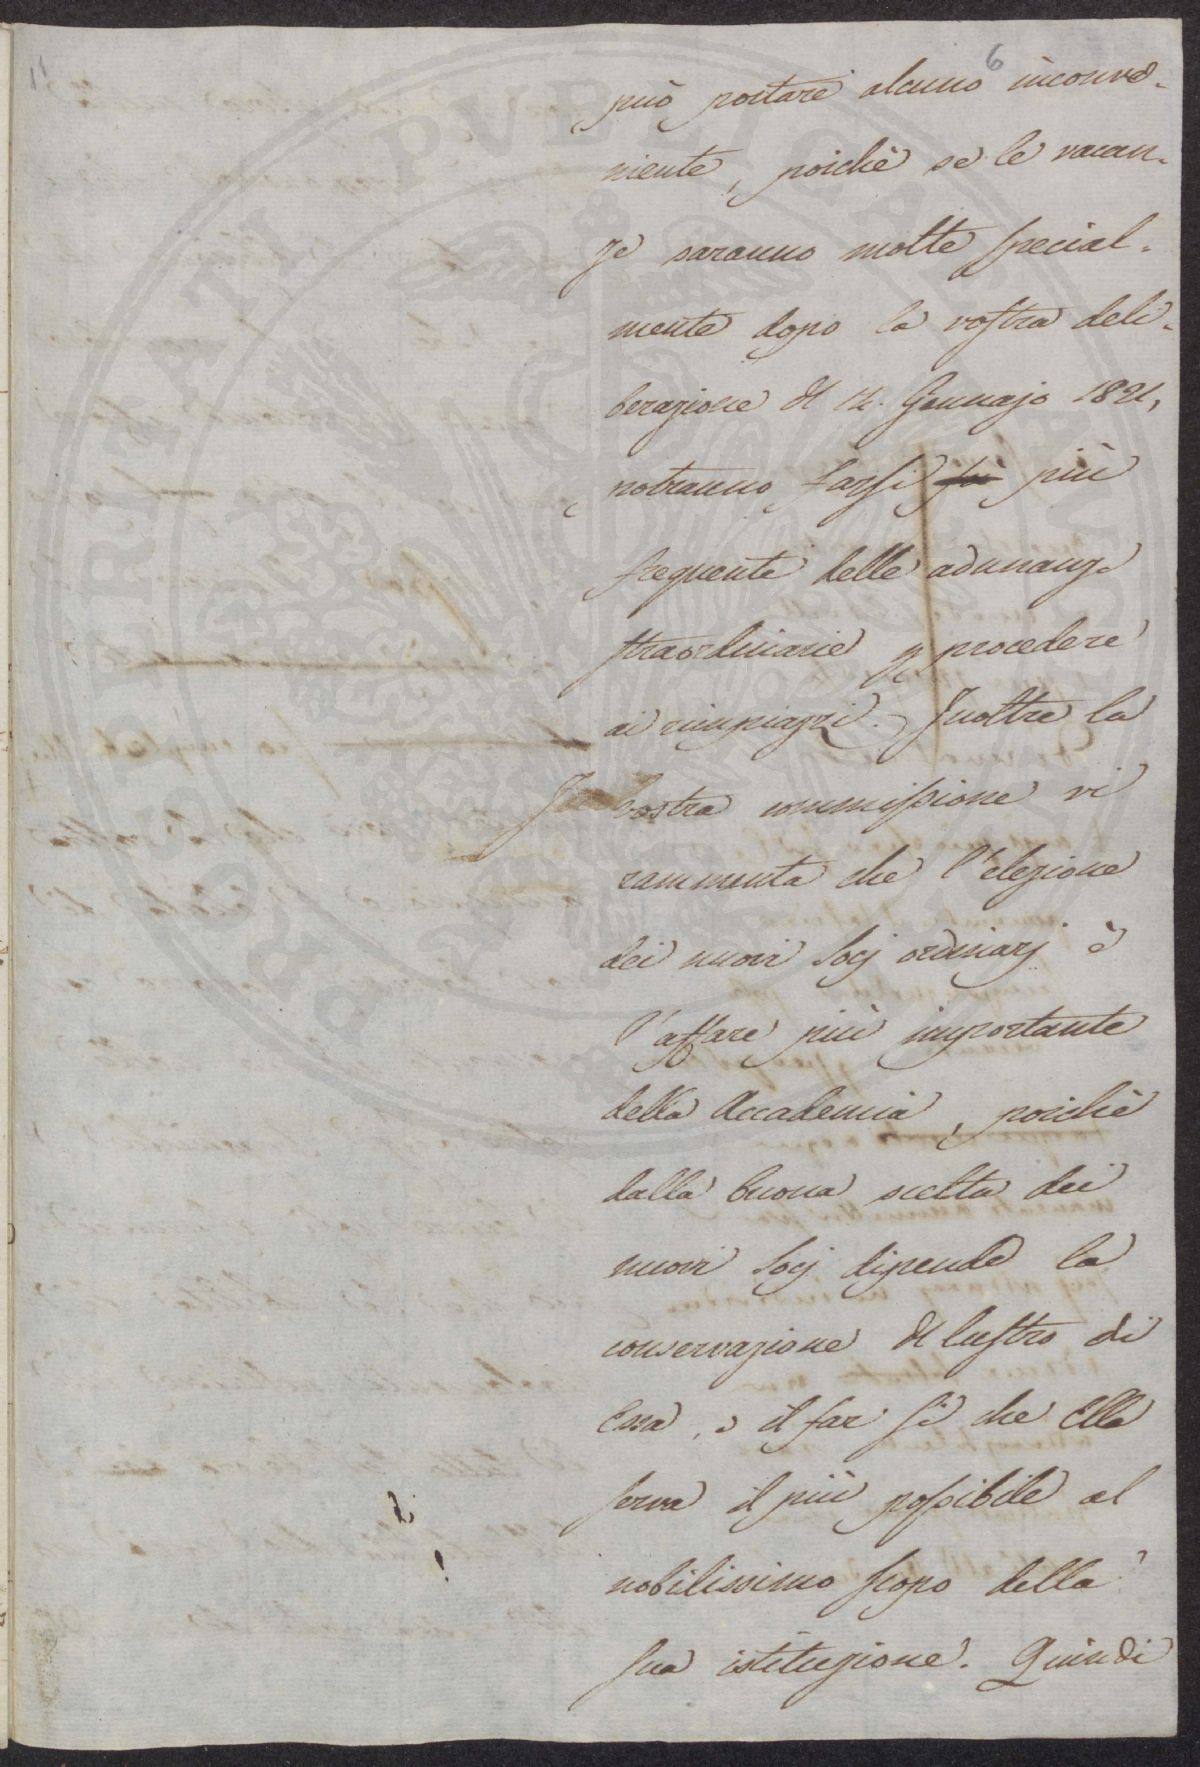 6
può portare alcuno inconve-
niente, poichè se le vacan-
ze saranno molte special-
mente dopo la vostra deli-
berazione del 12. Gennajo 1821,
potranno farsi più
frequente delle adunanze
straordinarie procedere
ai rimpiazzi. Inoltre la
vostra commissione vi
rammenta che l'elezione
dei nuovi Socj ordinarj è
l'affare più importante
della Accademia, poichè
dalla buona scelta dei
nuovi Socj dipende la
conservazione del lustro di
Essa, e il far sì che Ella
serva il più possibile al
nobilissimo scopo della
sua istituzione. Quindi